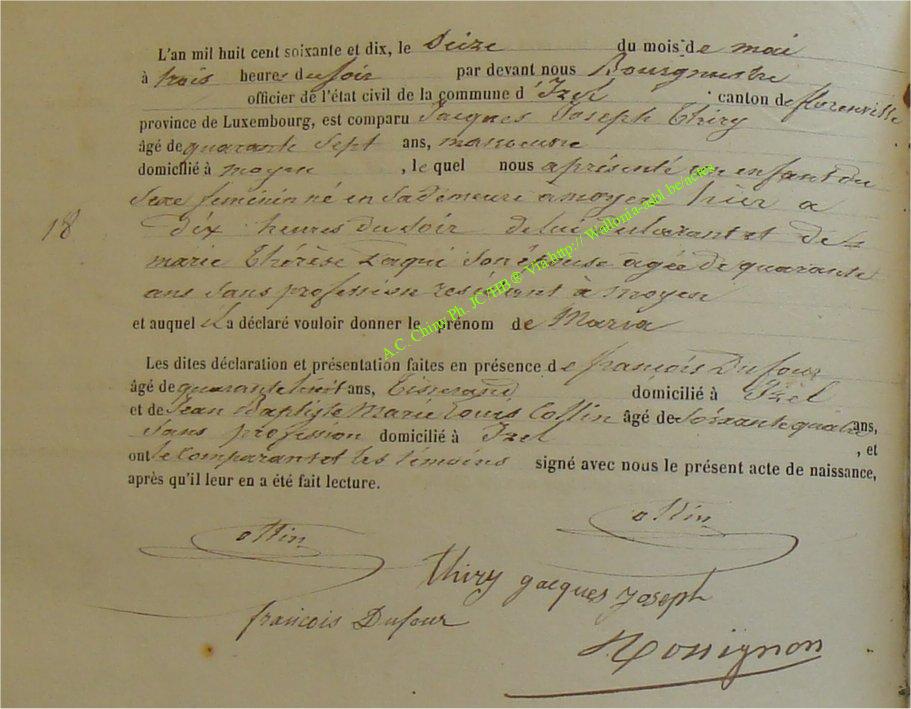 L'an mil huit cent soixante et dix, le Seize du mois de mai
à trois heures du soir par devant nous Bourgmestre
officier de l'état civil de la commune d'Izel canton de florenville
province de Luxembourg, est comparu Jacques Joseph Thiry
âgé de quarante Sept ans, manoeuvre
domicilié à moyen, le quel nous a présenté un enfant du
Sexe féminin né en Sa demeure a moyen hier a
18 dix heures du Soir de lui déclarant et de
marie Thérèse Laqui Son épouse agée de quarante
ans Sans profession résidant à moyen
et auquel il a déclaré vouloir donner le prénom de Maria
Les dites déclaration et présentation faites en présence de françois Dufour
âgé de quarante huit ans, Tisserand domicilié à Izel
et de Jean Baptiste Marie Louis Collin âgé de Soixante quatre ans,
Sans profession domicilié à Izel, et
ont le Comparant et les témoins signé avec nous le présent acte de naissance,
après qu'il leur en a été fait lecture.
ollin ollin
Thiry jacques Joseph
francois Dufour
Rossignon
A.C. Chiny Ph. JC HB@ Via http:// Wallonia-asbl.be/actes